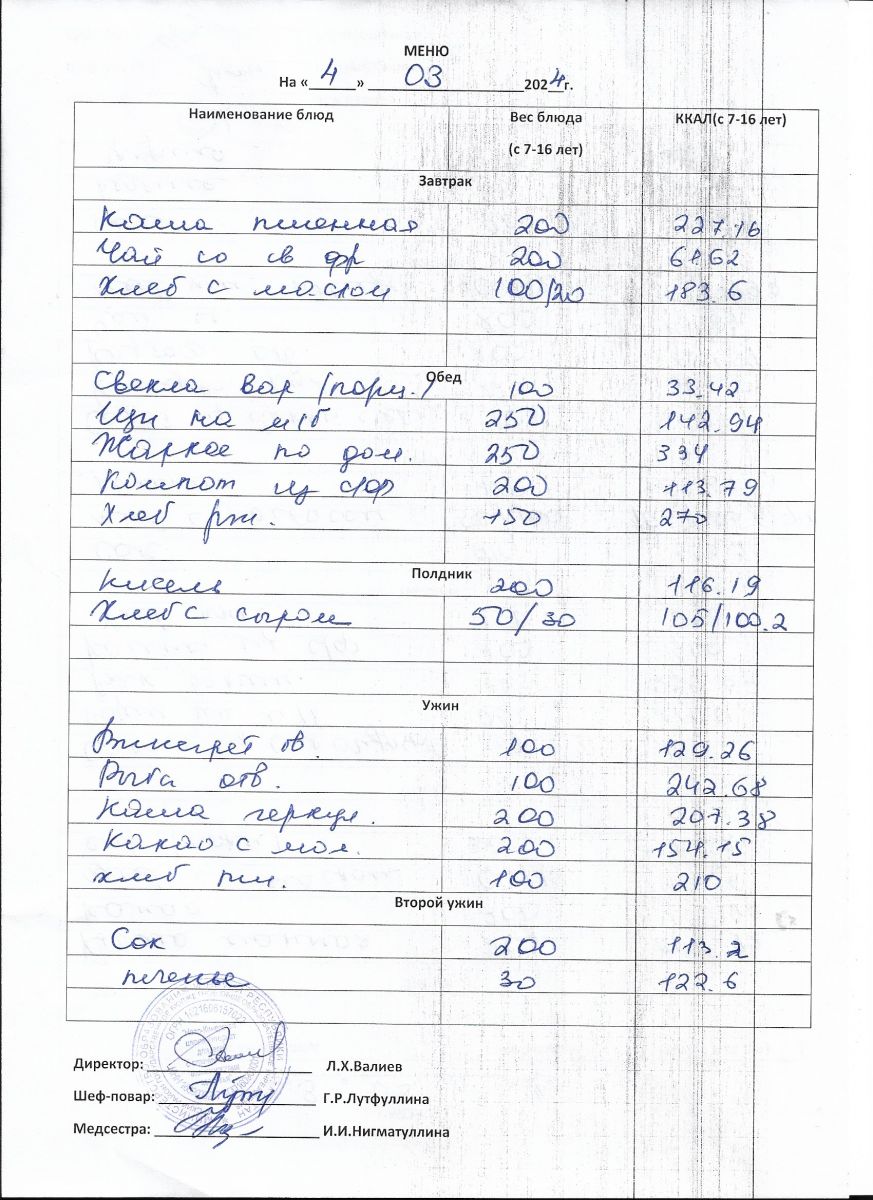 МЕНЮ
На «4» 03 2024г.
Наименование блюд Вес блюда (с 7-16 лет) ККАЛ(с 7-16 лет)
Завтрак
Каша пшенная 200 227.16
Чай со св фр 200 61.62
Хлеб с маслом 100/20 183.6
Обед
Свекла вар (порц.) 100 33.42
Щи на м/б 250 142.94
Жаркое по дом. 250 334
Компот из с/фр 200 113.79
Хлеб рж. 150 270
Полдник
Кисель 200 116.19
Хлеб с сыром 50/30 105/100.2
Ужин
Винегрет ов. 100 129.26
Рыба отв. 100 242.68
Каша геркул. 200 207.38
Какао с мол. 200 154.15
хлеб пш. 100 210
Второй ужин
Сок 200 113.2
печенье 30 122.6
Директор: Л.Х.Валиев
Шеф-повар: Г.Р.Лутфуллина
Медсестра: И.И.Нигматуллина